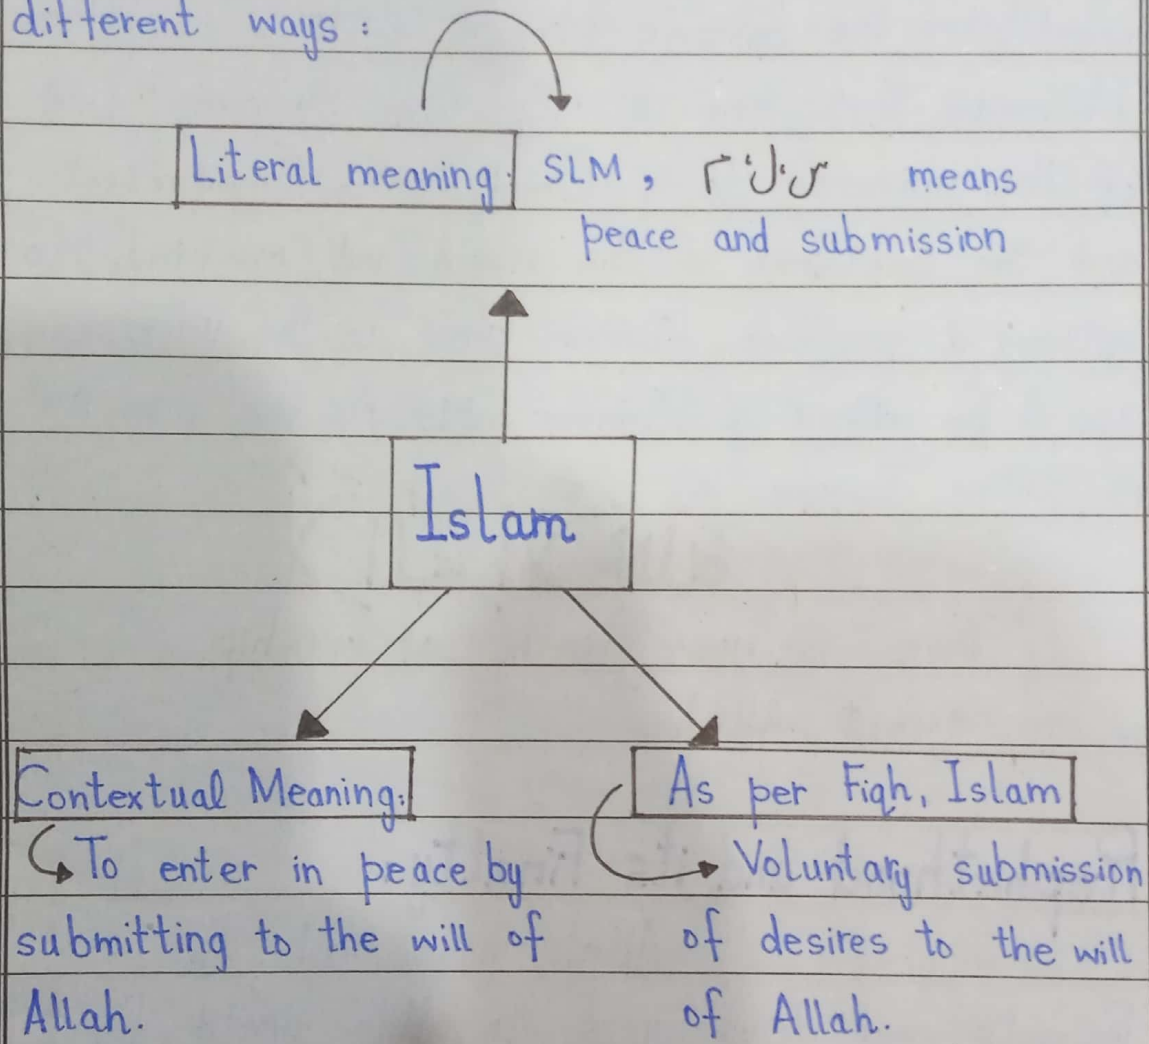 different ways:
Literal meaning: SLM, س، ل، م means
peace and submission
Islam
Contextual Meaning:
To enter in peace by
submitting to the will of
Allah.
As per Fiqh, Islam
Voluntary submission
of desires to the will
of Allah.